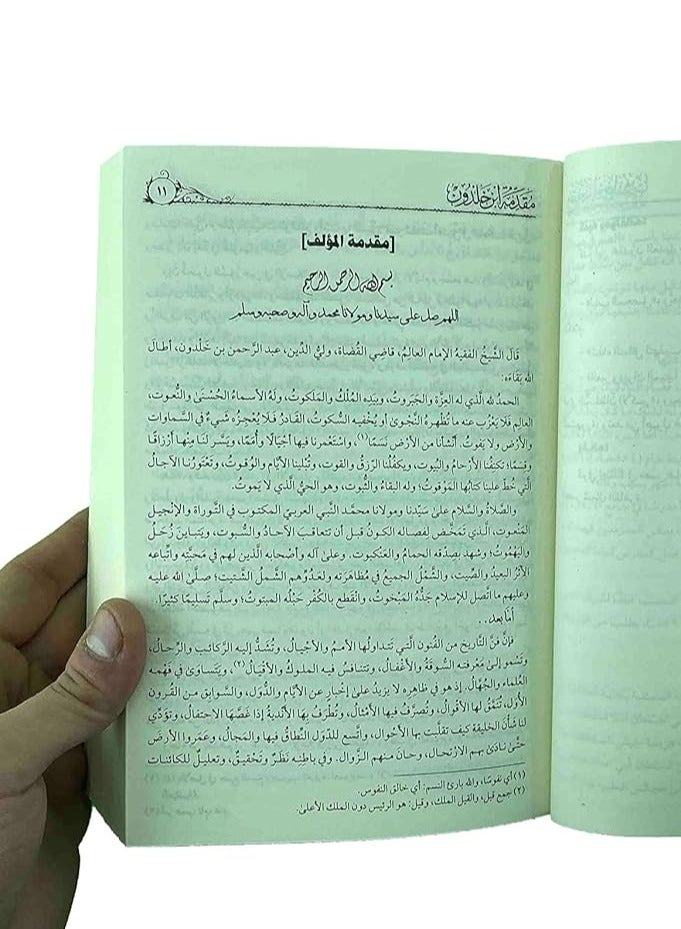 مقدمة ابن خلدون
١١
[مقدمة المؤلف]
بسم الله الرحمن الرحيم
اللهم صل على سيدنا ومولانا محمد وآله وصحبه وسلم
قال الشَّيخُ الفقيه الإمام العالِمُ، قاضي القُضاة، وليُّ الدِّين، عبد الرَّحمن بن خَلْدون، أطالَ
الله بَقاءَه:
الحمدُ لله الَّذي له العِزَّة والجَبَروتُ، وبيَدِه المُلْكُ والمَلَكوتُ، ولَهُ الأسماءُ الحُسْنىٰ والنُّعوت،
العالِمِ فَلا يَعْزُب عنه ما تُظْهِرهُ النَّجْوىٰ أو يُخْفيه السُّكوتُ، القَادرُ فَلا يُعْجِزُه شَيءٌ في السَّماوات
والأَرْضِ ولا يَفوتُ. أنْشَأنا من الأَرْضِ نَسَمًا(١)، واسْتَعْمرنا فيها أجْيَالًا وأُمَمًا، ويَسَّر لنا مِنْها أرْزاقًا
وقِسَمًا؛ تكنِفُنا الأرْحامُ والبُيوت، ويكفُلُنا الرِّزقُ والقوت، وتُبْلينا الأيَّام والوُقوتُ، وتَعْتَوِرُنا الآجالُ
الَّتي خُطَّ علينا كتابُها المَوْقوتُ؛ وله البقاءُ والثُّبوت، وهو الحيُّ الَّذي لا يَموتُ.
والصَّلاةُ والسَّلام علىٰ سَيِّدِنا ومولانا محمَّد النَّبي العَربيِّ المكتوب في التَّوراة والإنْجيل
المَنْعوت، الَّذي تَمَخَّض لفِصاله الكونُ قبل أن تتعاقَبَ الآحادُ والسُّبوت، ويَتَباينَ زُحَلُ
واليَهْمُوتُ؛ وشهِد بصِدْقه الحمامُ والعَنكبوت. وعلىٰ آله وأصْحابه الَّذين لهم في مَحَبَّتِه واتِّباعه
الأثَرُ البعيدُ والصِّيت، والشَّمْلُ الجميعُ في مُظاهَرته ولعَدُوِّهم الشَّملُ الشَّتيت؛ صلَّىٰ الله عليه
وعليهم ما اتَّصل للإسلام جَدُّهُ المَبْخوتُ، وانْقطع بالكُفْر حَبْلُه المبتوتُ؛ وسلَّم تَسليمًا كثيرًا.
أمَّا بعد..
فإنَّ فَنَّ التَّاريخِ من الفُنون الَّتي تَتداولُها الأممُ والأجْيالُ، وتُشَدُّ إليه الرَّكائب والرِّحالُ،
وتَسْمو إلىٰ مَعْرفَته السُّوقَةُ والأغْفال، وتتنافس فيه الملوكُ والأقْيالُ(٢)، ويَتَساوىٰ في فَهْمِه
العُلماء والجُهَّال. إذ هو في ظاهِره لا يَزيدُ علىٰ إخبارٍ عن الأيَّام والدُّوَل، والسَّوابقِ من القُرون
الأُوَل، تُنمَّقُ لها الأقوالُ، وتُصرَّفُ فيها الأمْثالُ، وتُطرَفُ بها الأنْديةُ إذا غَصَّهَا الاحْتفال، وتُؤدِّي
لنا شأنَ الخَليقة كيف تقلَّبت بِها الأحْوال، واتَّسع للدُّوَل النِّطاقُ فيها والمَجالُ، وعَمَروا الأرضَ
حتَّىٰ نادىٰ بهم الارْتِحال، وحانَ منهم الزَّوالُ. وفي باطِنِه نَظَرٌ وتحْقيقٌ، وتعليلٌ للكائنات
(١) أي نفوسًا، والله بارئ النسم: أي خالق النفوس.
(٢) جمع قيل، والقيل الملك، وقيل: هو الرئيس دون الملك الأعلىٰ.